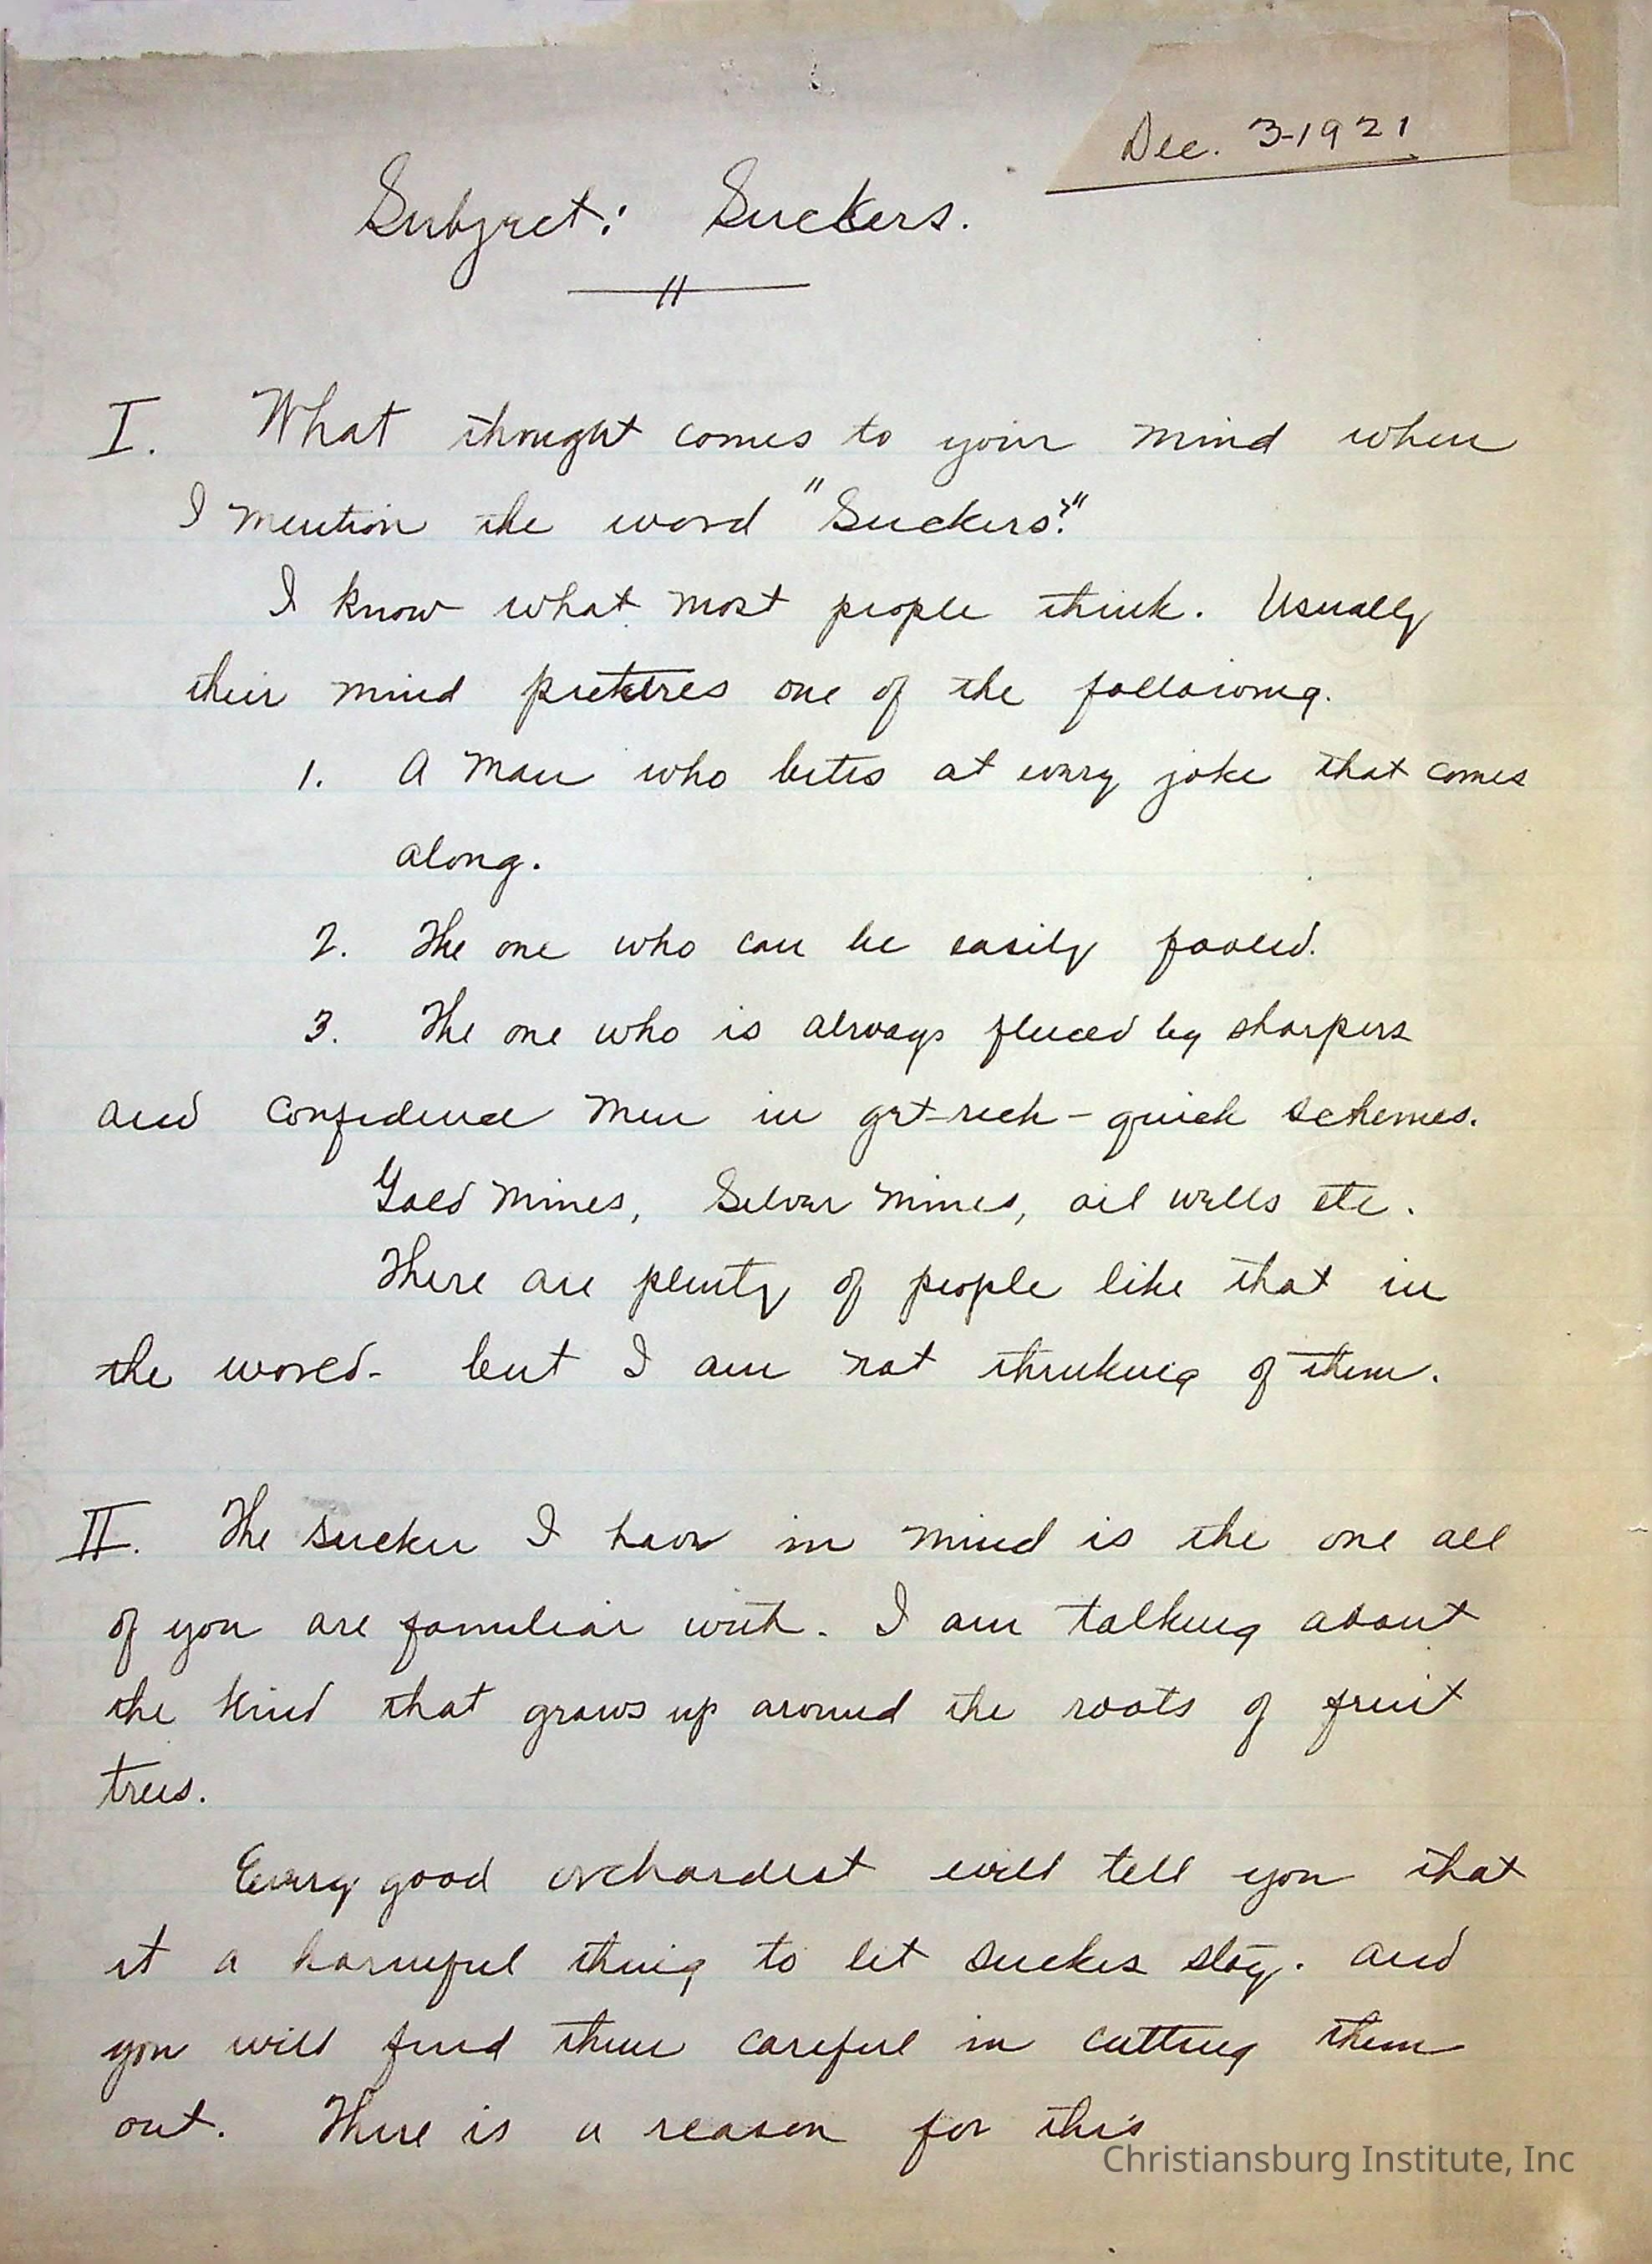 Dec. 3-1921
Subject: Suckers.
I. What thought comes to your mind when
I mention the word "Suckers?"
I know what most people think. Usually
their mind pictures one of the following.
1. A man who bites at every joke that comes
along.
2. The one who can be easily fooled.
3. The one who is always fleeced by sharpers
and confidence men in get-rich-quick schemes.
Gold mines, Silver mines, oil wells etc.
There are plenty of people like that in
the world- but I am not thinking of them.
II. The sucker I have in mind is the one all
of you are familiar with. I am talking about
the kind that grows up around the roots of fruit
trees.
Every good orchardist will tell you that
it a harmful thing to let suckers stay. and
you will find them careful in cutting them
out. There is a reason for this
Christiansburg Institute, Inc